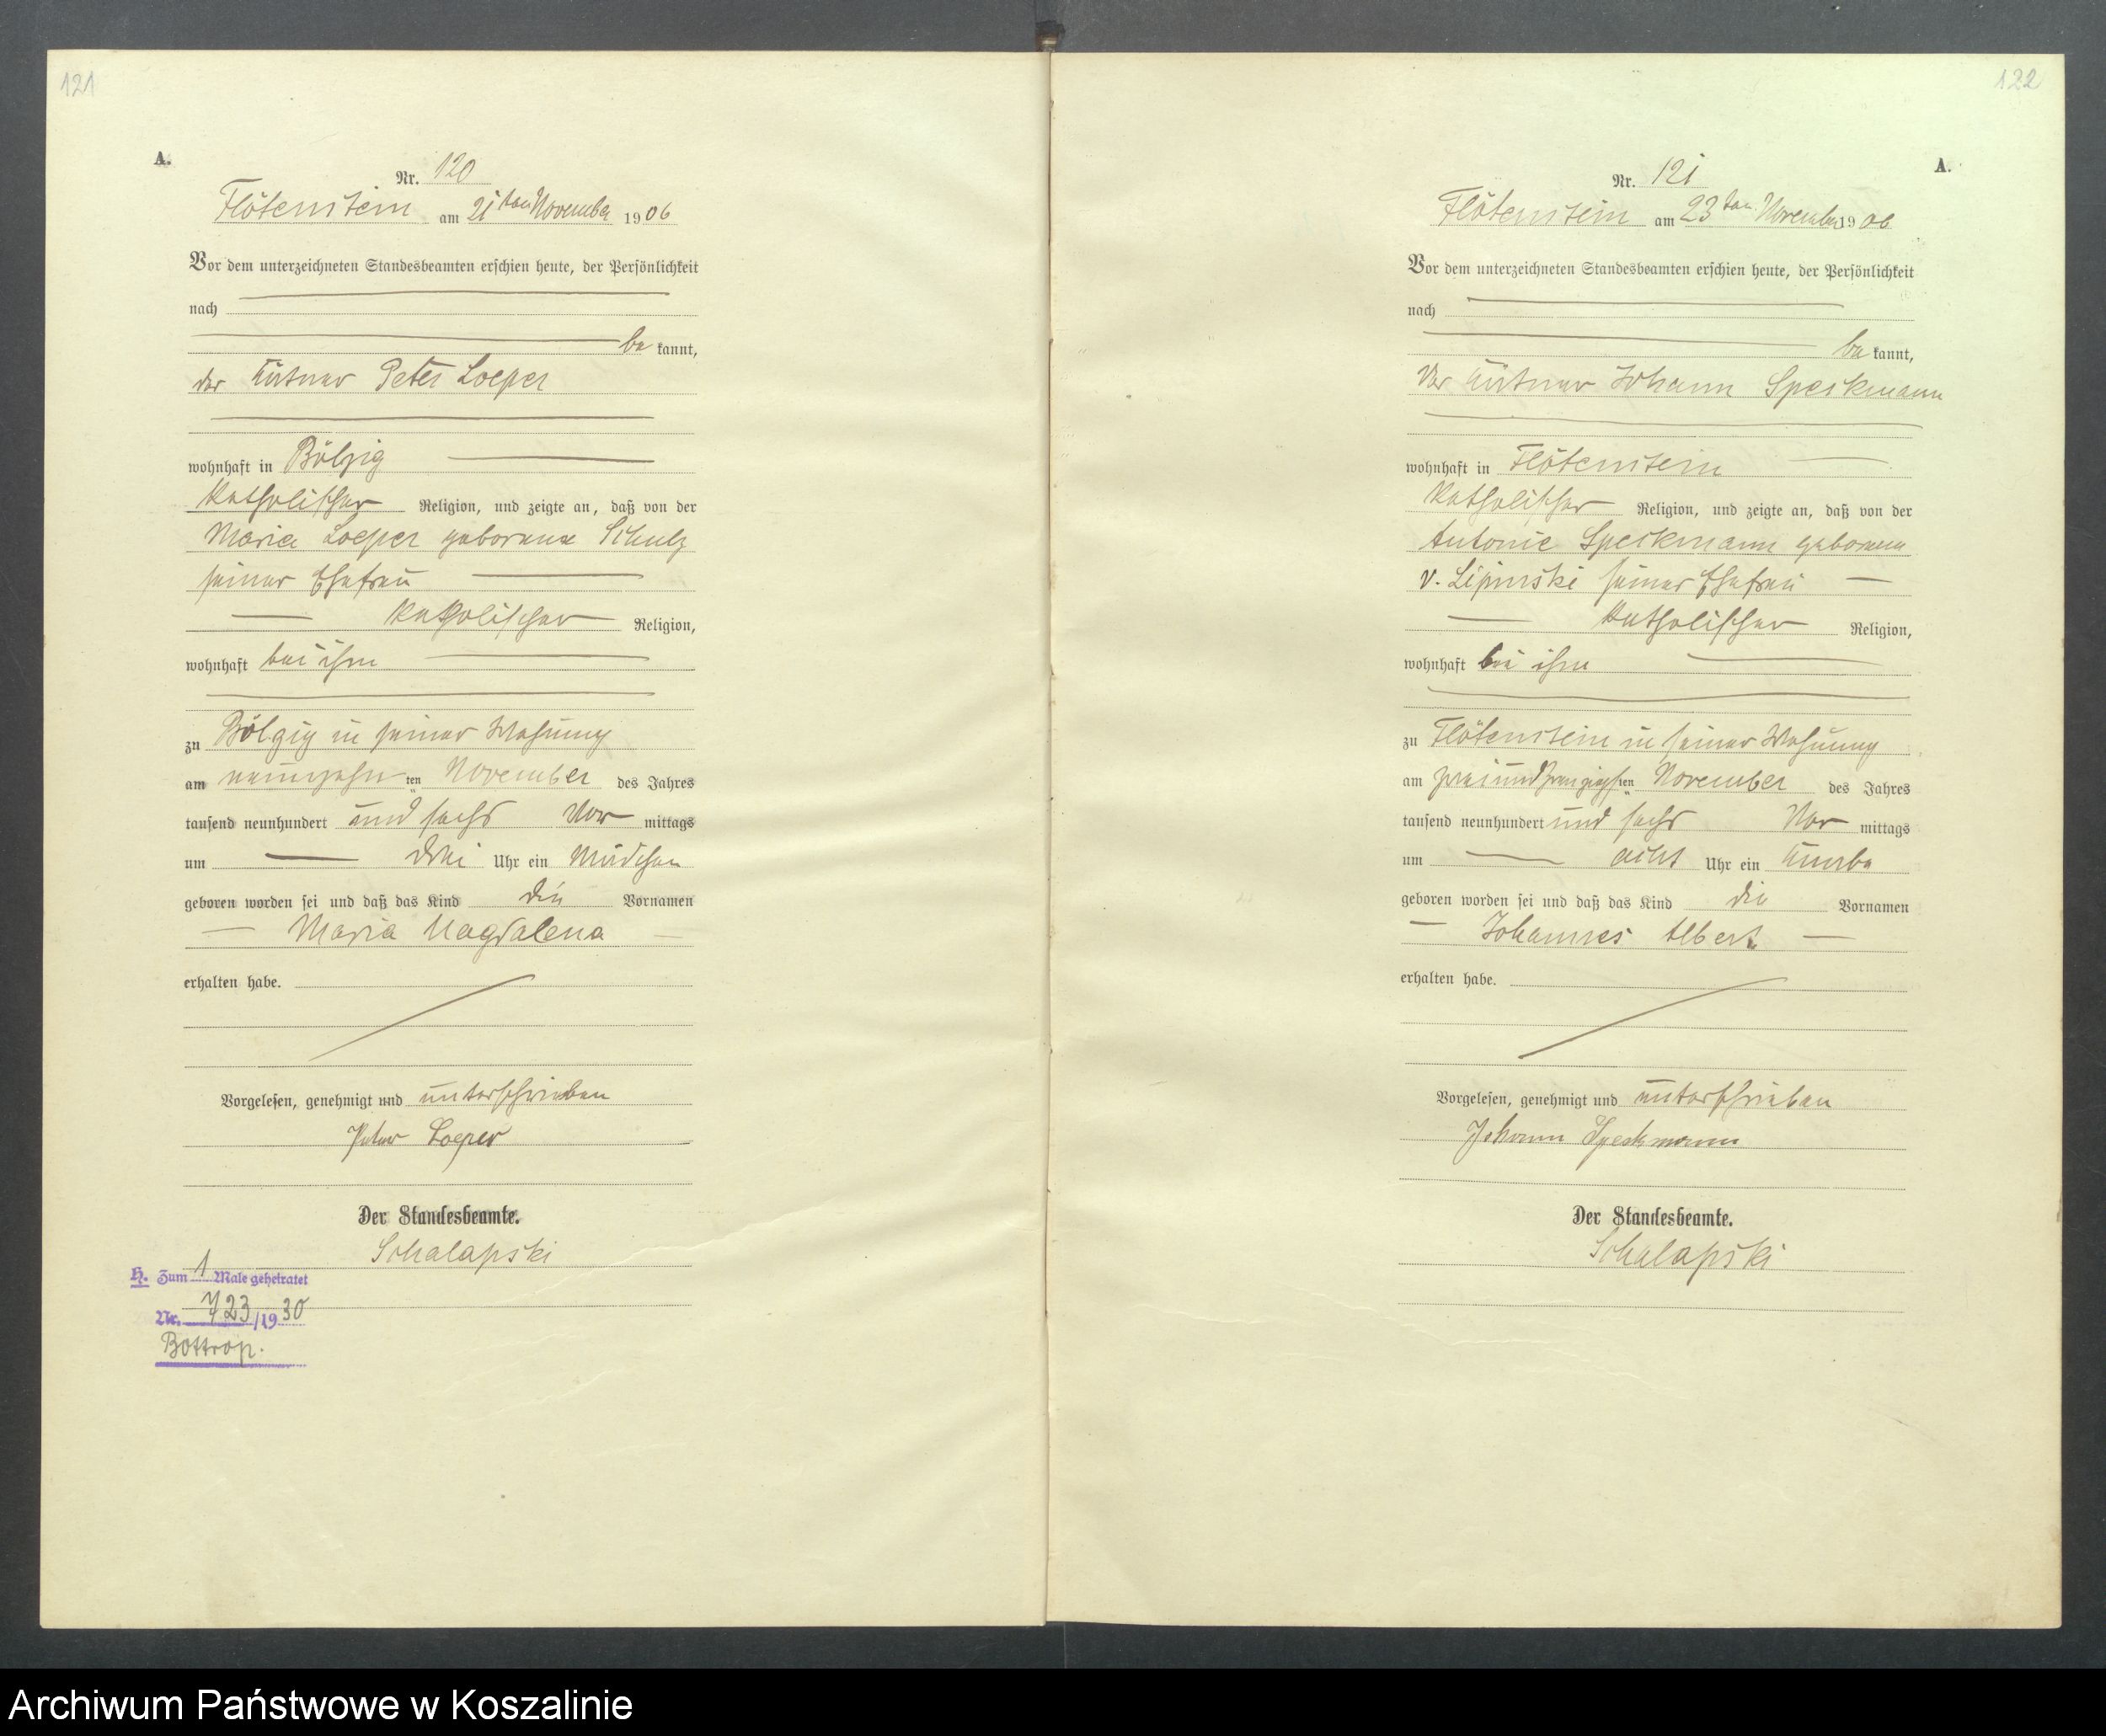 121
A.
Nr. 120
Flötenstein am 21ten November 1906
Vor dem unterzeichneten Standesbeamten erschien heute, der Persönlichkeit
nach
be kannt,
der Kätner Peter Loeper
wohnhaft in Bölzig
katholischer Religion, und zeigte an, daß von der
Maria Loeper geborene Schulz
seiner Ehefrau
katholischer Religion,
wohnhaft bei ihm
zu Bölzig in seiner Wohnung
am neunzehn ten November des Jahres
tausend neunhundert und sechs Vor mittags
um drei Uhr ein Mädchen
geboren worden sei und daß das Kind die Vornamen
Maria Magdalena
erhalten habe.
Vorgelesen, genehmigt und unterschrieben
Peter Loeper
Der Standesbeamte.
Schalapski
H. Zum 1 Male geheiratet
Nr. 723/1930
Bottrop.
122
A.
Nr. 121
Flötenstein am 23ten November 1906
Vor dem unterzeichneten Standesbeamten erschien heute, der Persönlichkeit
nach
be kannt,
Der Kätner Johann Speckmann
wohnhaft in Flötenstein
katholischer Religion, und zeigte an, daß von der
Antonie Speckmann geborene
v. Lipinski seiner Ehefrau
katholischer Religion,
wohnhaft bei ihm
zu Flötenstein in seiner Wohnung
am zweiundzwanzigsten November des Jahres
tausend neunhundert und sechs Vor mittags
um acht Uhr ein Knabe
geboren worden sei und daß das Kind die Vornamen
Johannes Albert
erhalten habe.
Vorgelesen, genehmigt und unterschrieben
Johann Speckmann
Der Standesbeamte.
Schalapski
Archiwum Państwowe w Koszalinie